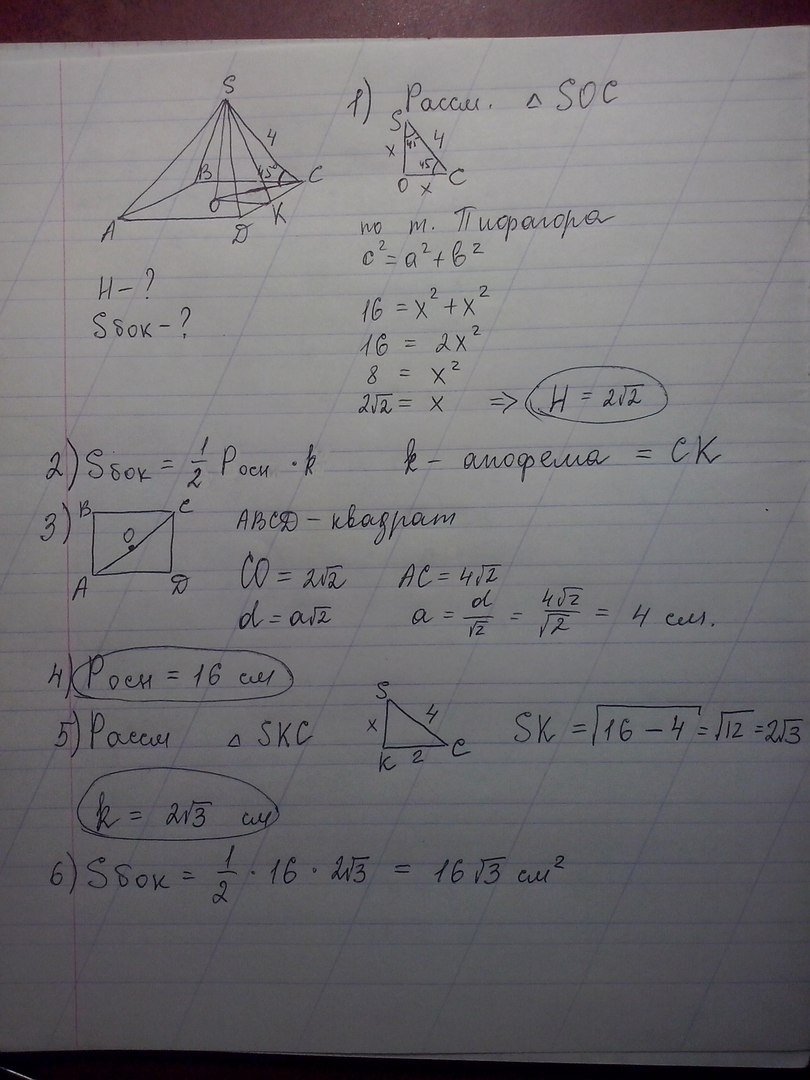 S
4
B
45°
C
O
K
A
D
H - ?
Sбок - ?
1) Рассм. △ SOC
S
45
4
x
45
O
x
C
по т. Пифагора
c² = a² + b²
16 = x² + x²
16 = 2x²
8 = x²
2√2 = x => H = 2√2
2) Sбок = 1/2 Pосн · k   k - апофема = CK
3) B C O A D
ABCD - квадрат
CO = 2√2   AC = 4√2
d = a√2   a = d/√2 = 4√2/√2 = 4 см.
4) Pосн = 16 см
5) Рассм △ SKC
S
x
4
K
2
C
SK = √16 - 4 = √12 = 2√3
k = 2√3 см
6) Sбок = 1/2 · 16 · 2√3 = 16√3 см²